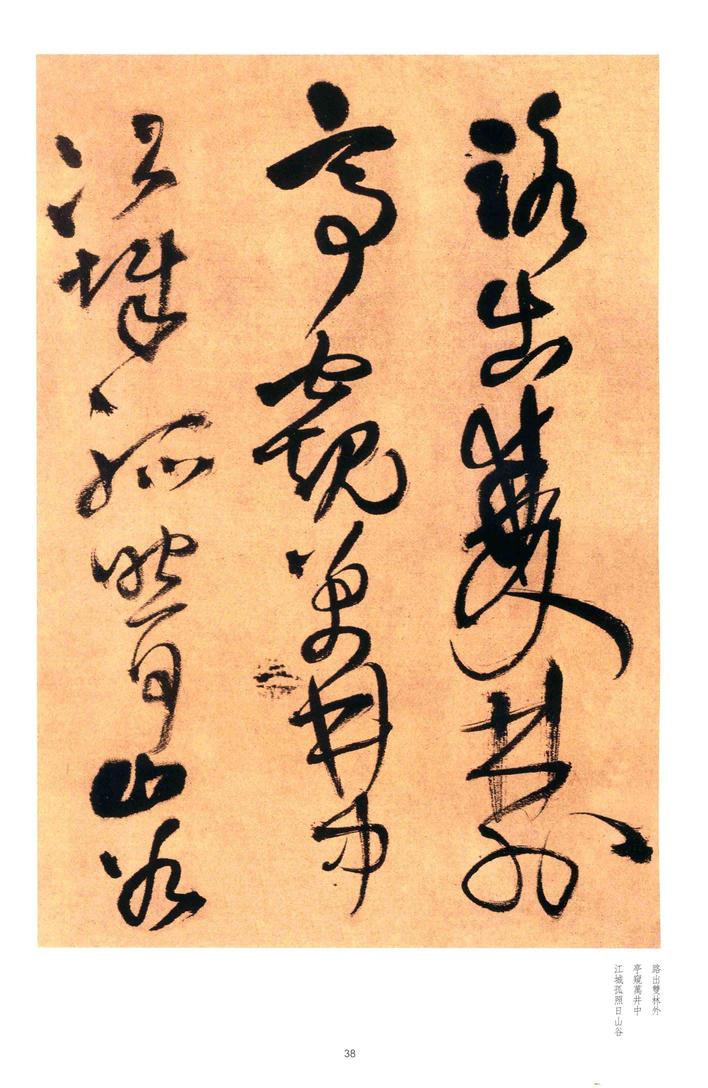 路出雙林外
亭窺萬井中
江城孤照日山谷
路出雙林外
亭窺萬井中
江城孤照日山谷
38